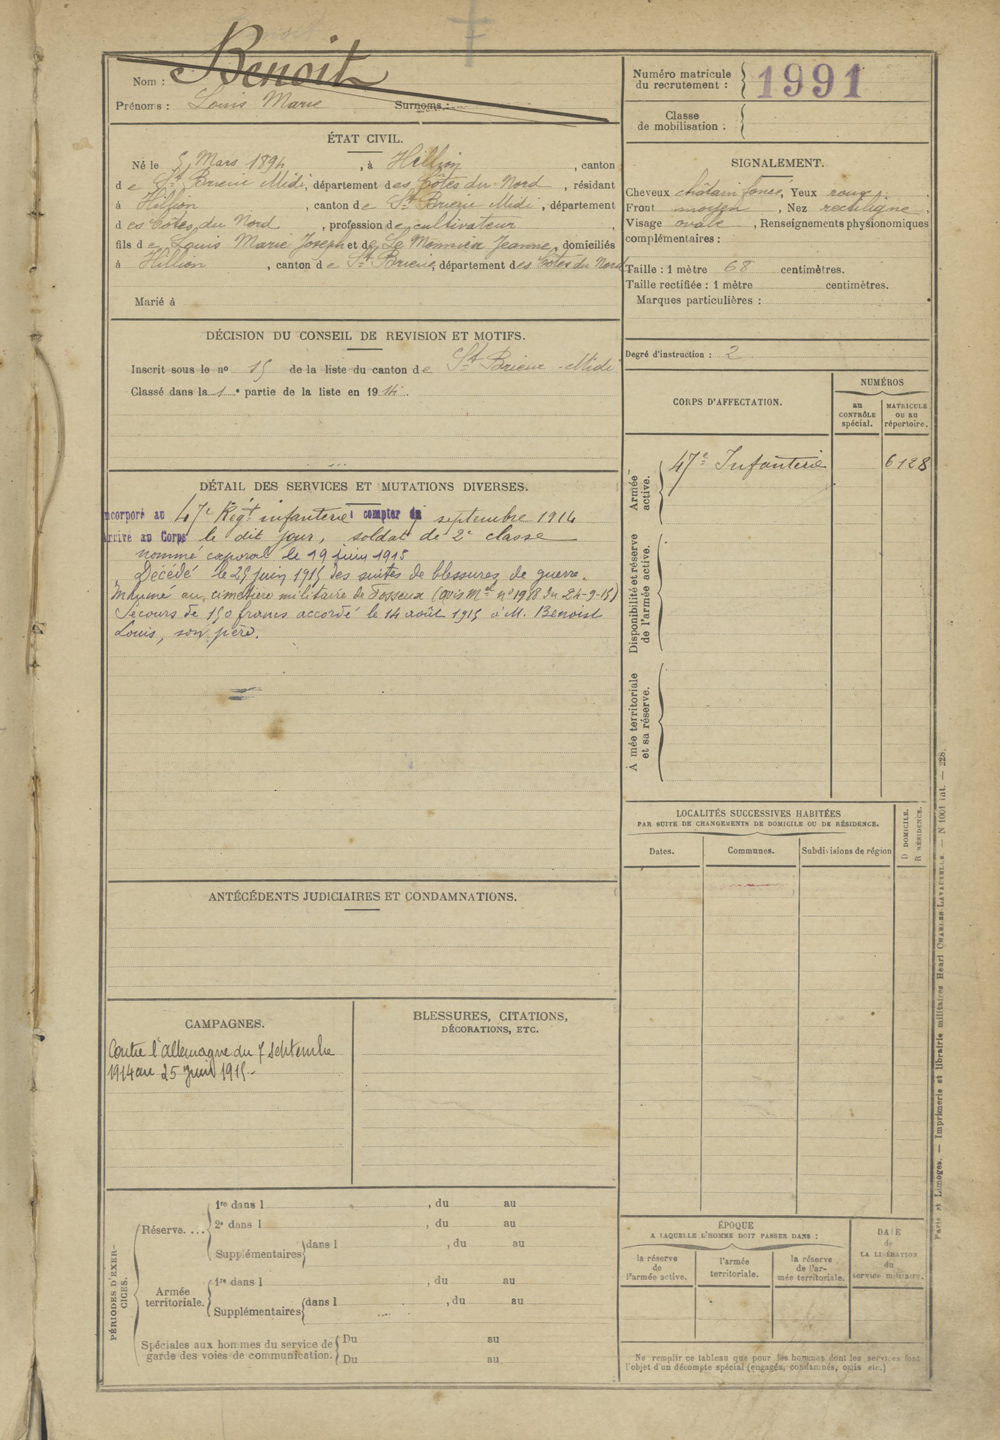 Nom : Benoit
Prénoms : Louis Marie Surnoms :
Numéro matricule
du recrutement : 1991
Classe
de mobilisation :
ÉTAT CIVIL.
Né le 5 Mars 1894, à Hillion, canton
de St Brieuc Midi, département des Côtes du Nord, résidant
à Hillion, canton de St Brieuc Midi, département
des Côtes du Nord, profession de cultivateur,
fils de Louis Marie Joseph et de Le Jeanne, domiciliés
à Hillion, canton de St Brieuc, département des Côtes du Nord
Marié à
SIGNALEMENT.
Cheveux châtain foncé, Yeux roux,
Front moyen, Nez rectiligne,
Visage ovale, Renseignements physionomiques
complémentaires :
Taille : 1 mètre 68 centimètres.
Taille rectifiée : 1 mètre centimètres.
Marques particulières :
Degré d'instruction : 2
DÉCISION DU CONSEIL DE REVISION ET MOTIFS.
Inscrit sous le no 15 de la liste du canton de St Brieuc - Midi
Classé dans la 1e partie de la liste en 1914.
CORPS D'AFFECTATION.
NUMÉROS
au
CONTRÔLE
spécial.
MATRICULE
OU AU
répertoire.
Armée
active.
47e Infanterie 6128
Disponibilité et réserve
de l'armée active.
A mée territoriale
et sa réserve.
DÉTAIL DES SERVICES ET MUTATIONS DIVERSES.
ncorporé au 47e Régt infanterie à compter du 7 septembre 1914
rrivé au Corps le dit jour, soldat de 2e classe
nommé caporal le 19 juin 1915
Décédé le 25 juin 1915 des suites de blessures de guerre.
Inhumé au cimetière militaire de Fosseux (avis Mel no 1918 du 24-9-15)
Secours de 150 francs accordé le 14 août 1915 à M. Benoist
Louis, son père.
LOCALITÉS SUCCESSIVES HABITÉES
PAR SUITE DE CHANGEMENTS DE DOMICILE OU DE RÉSIDENCE.
Dates.
Communes.
Subdivisions de région
D DOMICILE.
R RÉSIDENCE.
ANTÉCÉDENTS JUDICIAIRES ET CONDAMNATIONS.
CAMPAGNES.
Contre l'Allemagne du 7 septembre
1914 au 25 juin 1915.
BLESSURES, CITATIONS,
DÉCORATIONS, ETC.
PÉRIODES D'EXER-
CICES.
Réserve....
1re dans l , du au
2e dans l , du au
Supplémentaires dans l , du au
Armée
territoriale.
1re dans l , du au
Supplémentaires dans l , du au
Spéciales aux hommes du service de
garde des voies de communication.
Du au
Du au
ÉPOQUE
A LAQUELLE L'HOMME DOIT PASSER DANS :
la réserve
de
l'armée active.
l'armée
territoriale.
la réserve
de l'ar-
mée territoriale.
DATE
de
LA LIBÉRATION
du
service militaire.
Ne remplir ce tableau que pour les hommes dont les services font
l'objet d'un décompte spécial (engagés, condamnés, omis etc.)
Paris et Limoges. — Imprimerie et librairie militaires Henri CHARLES-LAVAUZELLE. — N 1001 int. — 228.